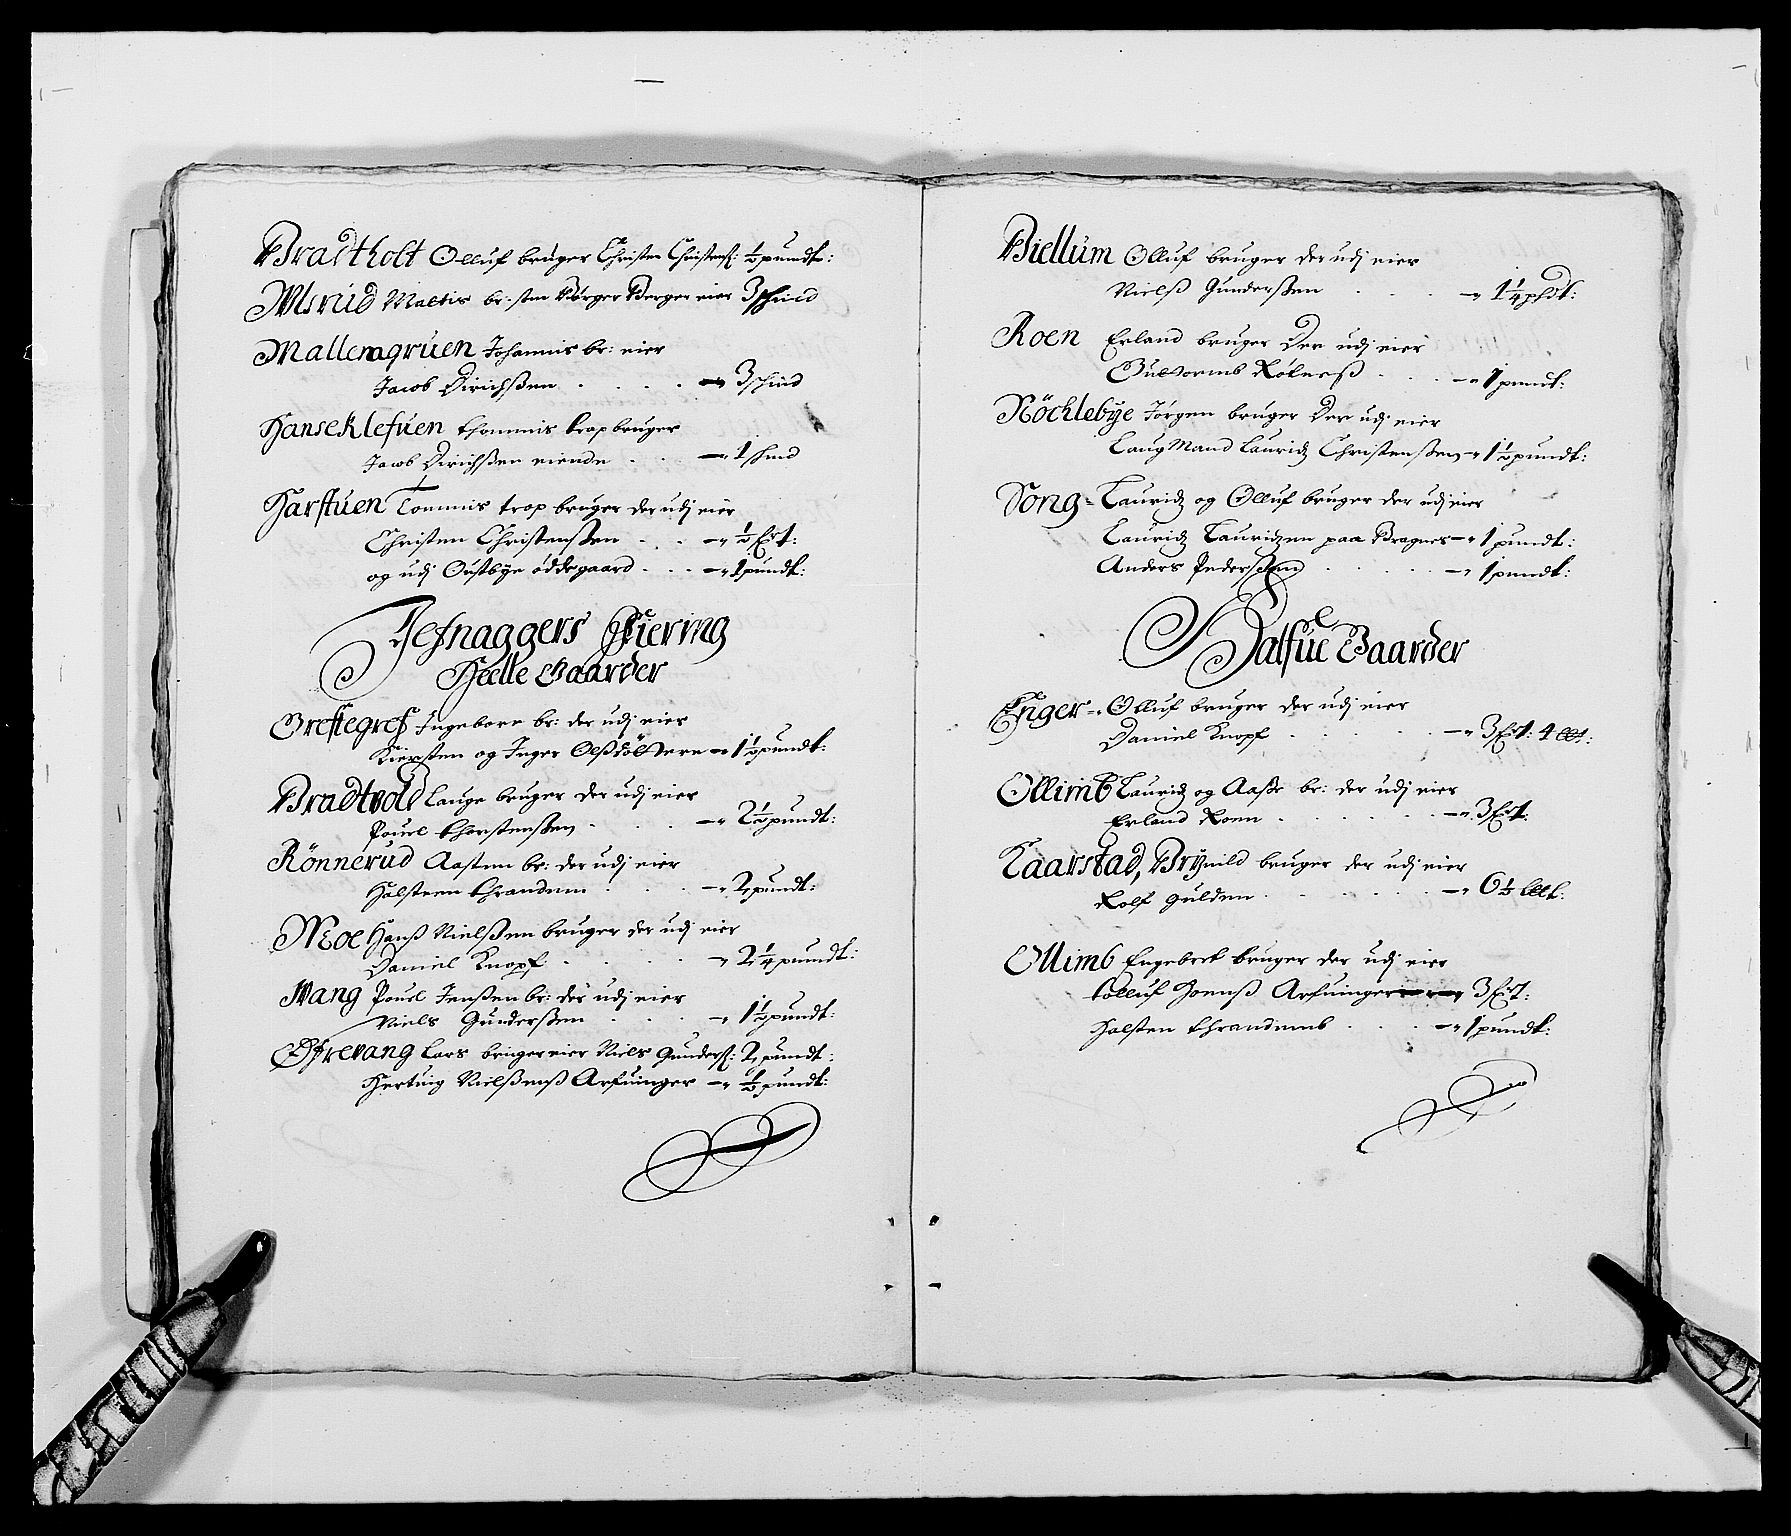 Bradtholt Olluf bruger Christen Christens: ½ pundt:
Ulsrud Mattis br: sten Børger Berger eier 3 schind
Mallemgruen Johannis br: eier
Jacob Dirichsßen . . . . 3 schind
Hanseklefuen thommis trop bruger
Jacob Dirichsßen eiende . . . 1 schind
Harstuen Tommis trop bruger der udj eier
Christen Christenßen . . . ½ sKt:
og udj Oustbye øddegaard . . . 1 pundt:
Jefnaggers Fiering
Heelle Gaarder
Greftegref Ingebore br: der udj eier
Kiersten og Inger Olßdøttere 1½ pundt:
Bradtvold Lauge bruger der udj eier
Pouel thorstenßen . . . 2½ pundt:
Rönnerud Aasten br: der udj eier
Halsteen thrandem . . . 2 pundt:
Moe Hanß Nielßen bruger der udj eier
Daniel Knopf . . . 2¼ pundt:
Wang Pouel Jenßen br: der udj eier
Niels Gunderßen . . . 1½ pundt:
Øfrevang Lars bruger eier Niels Gunders: 2 pundt:
Hertuig Nielßenß Arfuinger ½ pundt:
Biellum Olluf bruger der udj eier
Nielß Gunderßen . . . 1¼ pdt:
Roen Erland bruger Der udj eier
Guttormb Røkneß . . . 1 pundt:
Nöchlebye Jørgen bruger Der udj eier
LaugMand Lauridz Christenßen 1½ pundt:
Song = Lauridz og Olluf bruger der udj eier
Lauridz Lauridzen paa Bragnes 1 pundt:
Anders Pederßen . . . 1 pundt:
Halfue Gaarder
Enger = Olluf bruger der udj eier
Daniel Knopf . . . 3 sKt: 4 Let:
Ollimb Lauridz og Aaße br: der udj eier
Erland Roen . . . 3 sKt:
Kaarstad, Brynild bruger der udj eier
Rolf Gulden . . . 6½ Let:
Ollimb Engebret bruger der udj eier
tolluf Joenß Arfuinger 3 sKt:
Halsten thrandemb . . . 1 pundt: